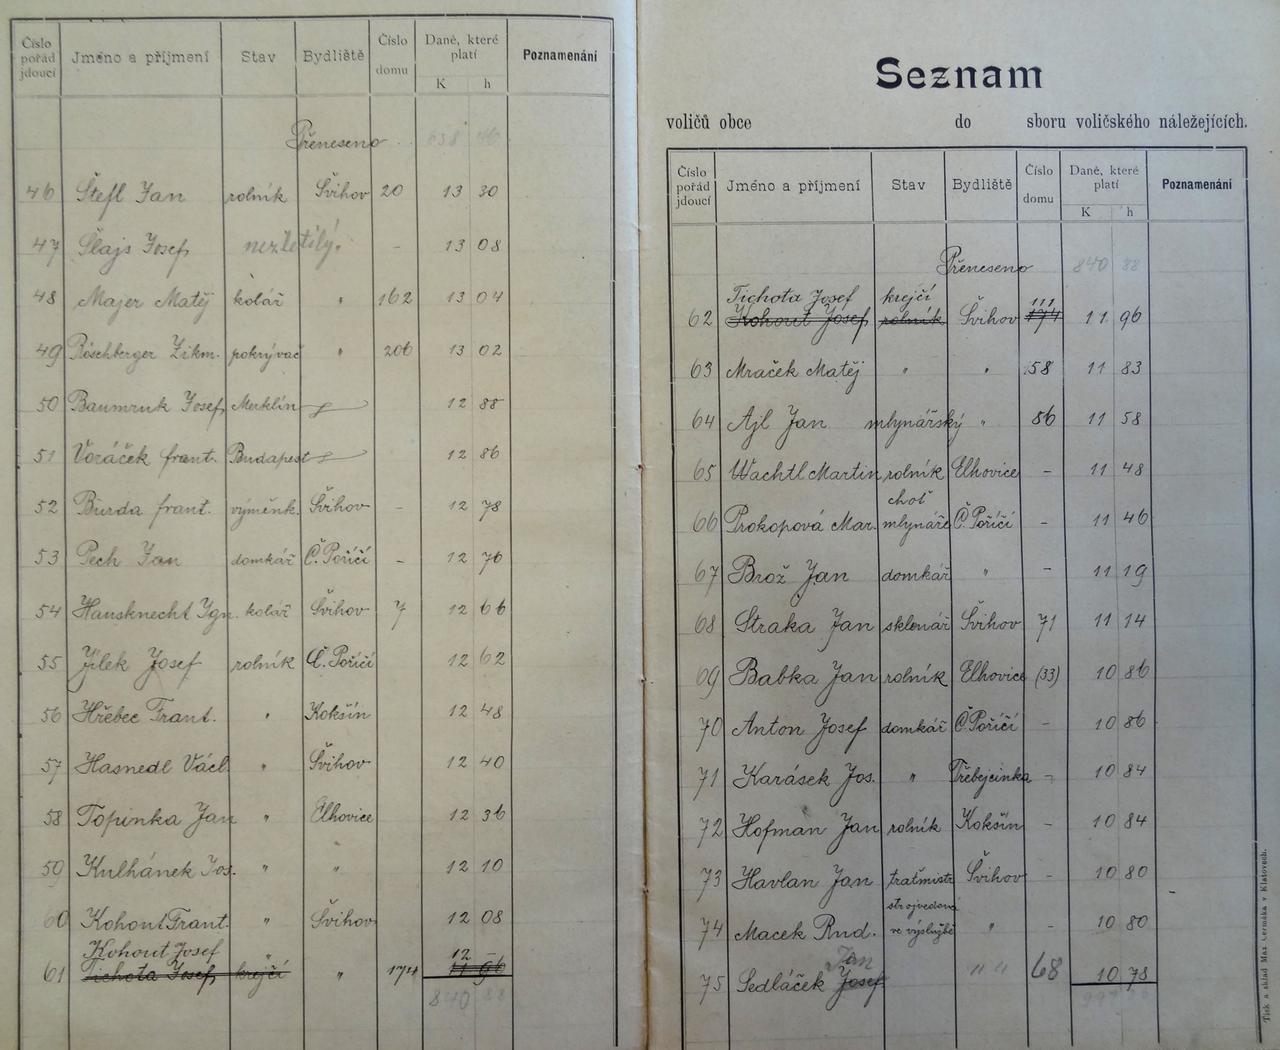 Číslo pořád jdoucí Jméno a příjmení Stav Bydliště Číslo domu Daně, které platí K h Poznamenání
Přeneseno 638 46
46 Štefl Jan rolník Švihov 20 13 30
47 Šlajs Josef nezletilý. - 13 08
48 Majer Matěj kolář " 162 13 04
49 Röschberger Zikm. pokrývač " 206 13 02
50 Baumruk Josef Merklín 12 88
51 Voráček frant. Budapest 12 86
52 Burda frant. výměnk. Švihov - 12 78
53 Pech Jan domkář Č. Poříčí - 12 76
54 Hausknecht Ign. kolář Švihov 7 12 66
55 Jílek Josef rolník Č. Poříčí 12 62
56 Hřebec Frant. " Kokšín 12 48
57 Hasnedl Václ. " Švihov 12 40
58 Topinka Jan " Elhovice 12 36
59 Kulhánek Jos. " " 12 10
60 Kohout Frant. " Švihov 12 08
Kohout Josef " 12 —
61 Tichota Josef krejčí " 174 11 96
840 88
Seznam
voličů obce do sboru voličského náležejících.
Číslo pořád jdoucí Jméno a příjmení Stav Bydliště Číslo domu Daně, které platí K h Poznamenání
Přeneseno 840 88
Tichota Josef krejčí 111
62 Kohout Josef rolník Švihov 174 11 96
63 Mraček Matěj " " 58 11 83
64 Ajl Jan mlynářský " 86 11 58
65 Wachtl Martin rolník Elhovice - 11 48
choť
66 Prokopová Mar. mlynáře Č. Poříčí - 11 46
67 Brož Jan domkář " - 11 19
68 Straka Jan sklenář Švihov 71 11 14
69 Babka Jan rolník Elhovice (33) 10 86
70 Anton Josef domkář Č. Poříčí - 10 86
71 Karásek Jos. " Třebejcinka - 10 84
72 Hofman Jan rolník Kokšín - 10 84
73 Havlan Jan traťmistr Švihov - 10 80
strojvedoucí
74 Macek Rud. ve výslužbě " - 10 80
Jan
75 Sedláček Josef " " 68 10 78
Tisk a sklad Max Čermáka v Klatovech.